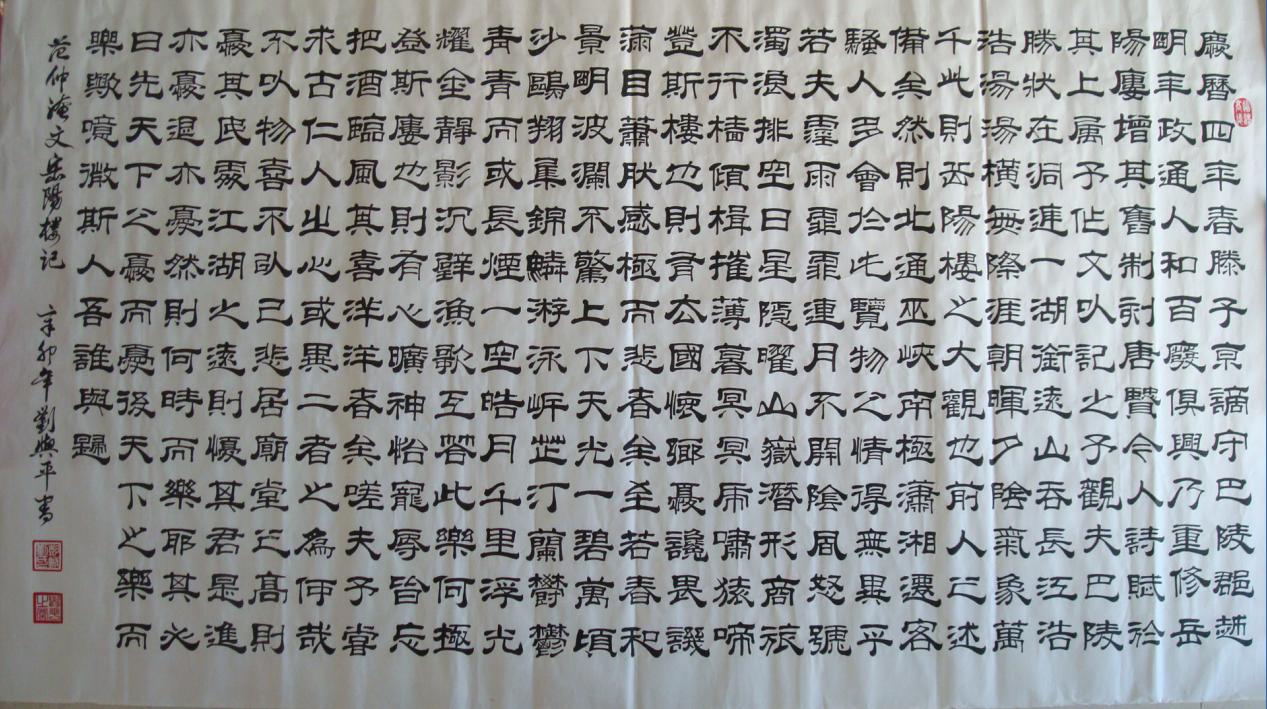 慶曆四年春滕子京謫守巴陵郡越
明年政通人和百廢俱興乃重修岳
陽樓增其舊制刻唐賢今人詩賦於
其上屬予作文以記之予觀夫巴陵
勝狀在洞庭一湖銜遠山吞長江浩
浩湯湯橫無際涯朝暉夕陰氣象萬
千此則岳陽樓之大觀也前人之述
備矣然則北通巫峽南極瀟湘遷客
騷人多會於此覽物之情得無異乎
若夫霪雨霏霏連月不開陰風怒號
濁浪排空日星隱曜山嶽潛形商旅
不行檣傾楫摧薄暮冥冥虎嘯猿啼
登斯樓也則有去國懷鄉憂讒畏譏
滿目蕭然感極而悲者矣至若春和
景明波瀾不驚上下天光一碧萬頃
沙鷗翔集錦鱗游泳岸芷汀蘭鬱鬱
青青而或長煙一空皓月千里浮光
耀金靜影沉璧漁歌互答此樂何極
登斯樓也則有心曠神怡寵辱皆忘
把酒臨風其喜洋洋者矣嗟夫予嘗
求古仁人之心或異二者之為何哉
不以物喜不以己悲居廟堂之高則
憂其民處江湖之遠則憂其君是進
亦憂退亦憂然則何時而樂耶其必
曰先天下之憂而憂後天下之樂而
樂歟噫微斯人吾誰與歸
范仲淹文岳陽樓记 辛卯年劉興平書